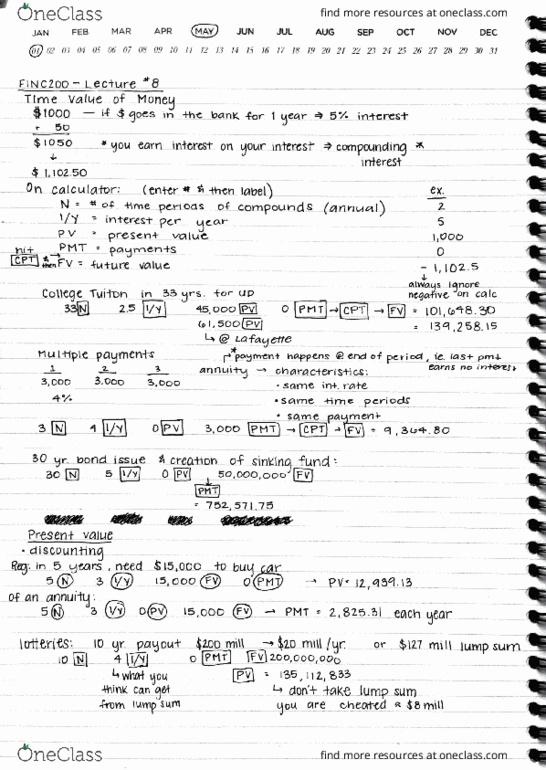 OneClass
find more resources at oneclass.com
JAN FEB MAR APR MAY JUN JUL AUG SEP OCT NOV DEC
01 02 03 04 05 06 07 08 09 10 11 12 13 14 15 16 17 18 19 20 21 22 23 24 25 26 27 28 29 30 31
FINC200 - Lecture #8
Time Value of Money
$1000 — if $ goes in the bank for 1 year → 5% interest
+ 50
$1050 *you earn interest on your interest → compounding *
↓ interest
$1,102.50
On calculator: (enter # & then label) ex.
N = # of time periods of compounds (annual) 2
I/Y = interest per year 5
PV = present value 1,000
hit PMT = payments 0
CPT & then FV = future value - 1,102.5
↓
always ignore
negative on calc
College Tuiton in 33 yrs. for UD
33 N 2.5 I/Y 45,000 PV 0 PMT → CPT → FV = 101,648.30
61,500 PV = 139,258.15
↳ @ Lafayette
Multiple payments *payment happens @ end of period, ie. last pmt
earns no interest
1 2 3 annuity → characteristics:
3,000 3,000 3,000 • same int. rate
4% • same time periods
• same payment
3 N 4 I/Y 0 PV 3,000 PMT → CPT → FV = 9,364.80
30 yr. bond issue & creation of sinking fund:
30 N 5 I/Y 0 PV 50,000,000 FV
↓
PMT
= 752,571.75
Present value
• discounting
Reg: in 5 years, need $15,000 to buy car
5 N 3 I/Y 15,000 FV 0 PMT → PV = 12,939.13
of an annuity:
5 N 3 I/Y 0 PV 15,000 FV → PMT = 2,825.31 each year
lotteries: 10 yr. payout $200 mill → $20 mill/yr. or $127 mill lump sum
10 N 4 I/Y 0 PMT FV 200,000,000
↳ what you PV = 135,112,833
think can get ↳ don't take lump sum
from lump sum you are cheated ≈ $8 mill
OneClass
find more resources at oneclass.com